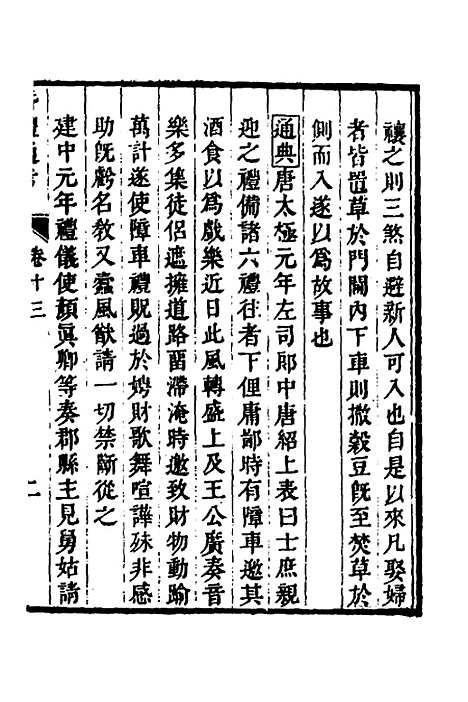 禳之則三煞自避新人可入也自是以來凡娶婦
者皆置草於門閫內下車則撒穀豆既至焚草於
側而入遂以爲故事也
通典唐太極元年左司郎中唐紹上表曰士庶親
迎之禮備諸六禮往者下俚庸鄙時有障車邀其
酒食以爲戲樂近日此風轉盛上及王公廣奏音
樂多集徒侶遮擁道路留滯淹時邀致財物動踰
萬計遂使障車禮貺過於娉財歌舞喧譁殊非感
助既虧名教又蠹風猷請一切禁斷從之
建中元年禮儀使顏眞卿等奏郡縣主見舅姑請
卷十三
二